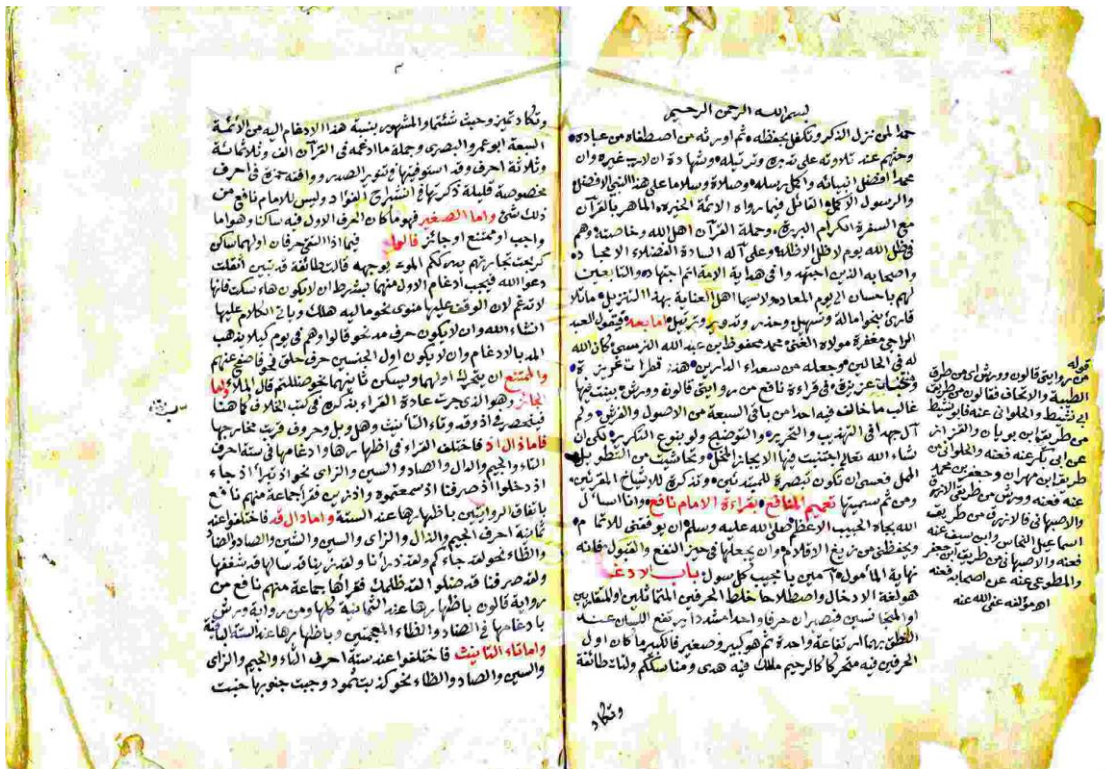 بسم الله الرحمن الرحيم
حمدا لمن نزل الذكر وتكفل بحفظه ثم اورثه من اصطفاه من عباده
وحثهم عند تلاوته على تدبره وترتيله وشهادة ان لا رب غيره وان
محمدا افضل انبيائه واكمل رسله وصلاة وسلاما على هذا النبي الافضل
والرسول الاكمل القائل فيما رواه الائمة الخيره الماهر بالقرآن
مع السفرة الكرام البررة وحملة القرآن اهل الله وخاصته وهم
في ظل الله يوم لا ظل الا ظله وعلى آله السادة الفضلاء الامجاد
واصحابه الذين اجتهدوا في هداية الامة اتم اجتهاد والتابعين
لهم باحسان الى يوم المعاد ولا سيما اهل العناية بهذا التنزيل ما تلا
قارئ بنحو امالة وتسهيل وحدر وتدوير وترتيل اما بعد فيقول العبد
الراجي مغفرة مولاه الغني محمد محفوظ بن عبد الله الترمسي كان الله
له في الحالين وجعله من سعداء الدارين هذه قطرات غزيرة
عزيزة في قراءة نافع من روايتي قالون وورش بينت فيها
غالب ما خالف فيه احدا من باقي السبعة من الاصول والفرش ولم
آل جهدا في التهذيب والتحرير والتوضيح ولو بنوع التكرير لكن ان
شاء الله تعالى اجتنبت فيها الايجاز المخل وتحاشيت من التطويل
الممل فعسى ان تكون تبصرة للمبتدئين وتذكرة للاشياخ المقرئين
ومن ثم سميتها تعميم المنافع بقراءة الامام نافع وانا اسأل
الله بجاه الحبيب الاعظم صلى الله عليه وسلم ان يوفقني للاتمام
ويحفظني من زيغ الاقلام وان يجعلها في حيز النفع والقبول فانه
نهاية المأمول آمين يا مجيب كل سول باب الادغام
هو لغة الادخال واصطلاحا خلط الحرفين المتماثلين او المتقاربين
او المتجانسين فيصيران حرفا واحدا مشددا يرتفع اللسان عند
النطق بهما ارتفاعة واحدة ثم هو كبير وصغير فالكبير ما كان اول
الحرفين فيه متحركا كالرحيم ملك فيه هدى ومناسككم ولتات طائفة
وتكاد
قوله
من روايتي قالون وورش اي من طرق
الطيبة والاتحاف فقالون من طريق
ابي نشيط والحلواني عنه فابو نشيط
من طريقي ابن بويان والقزاز
عن ابي بكر عنه فعنه والحلواني من
طريقي ابن مهران وجعفر بن محمد
عنه فعنه وورش من طريقي الازرق
والاصبهاني فالازرق من طريقي
اسماعيل النحاس وابن سيف عنه
فعنه والاصبهاني من طريقي ابن جعفر
والمطوعي عنه عن اصحابه فعنه
اهـ مؤلفه عفى الله عنه
٢
وتكاد تميز وحيث شئتما والمشهور بنسبة هذا الادغام اليه من الائمة
السبعة ابو عمرو البصري وجملة ما ادغمه في القرآن الف وثلاثمائة
وثلاثة احرف وقد استوفيتها في تنوير الصدر ووافقه حمزة في احرف
مخصوصة قليلة ذكرتها في انشراح الفؤاد وليس للامام نافع من
ذلك شئ واما الصغير فهو ما كان الحرف الاول فيه ساكنا وهو اما
واجب او ممتنع او جائز فيما اذا التقى حرفان اولهما ساكن
كربحت تجارتهم يدرككم الموت يوجهه قالت طائفة قد تبين اثقلت
دعوا الله فيجب ادغام الاول منهما بشرط ان لا يكون هاء سكت فانها
لا تدغم لان الوقف عليها منوى نحو ماليه هلك وياتي الكلام عليها
انشاء الله وان لا يكون حرف مد نحو قالوا وهم في يوم كيلا يذهب
المد بالادغام وان لا يكون اول الجنسين حرف حلق نحو فاصفح عنهم
والممتنع ان يتحرك اولهما ويسكن ثانيهما نحو ضللتم قال الملاء واما
الجائز وهو الذي جرت عادة القراء بذكره في كتب الخلاف كما هنا
فينحصر في اذ وقد وتاء التانيث وهل وبل وحروف قربت مخارجها
فاما ذال اذ فاختلف القراء في اظهارها وادغامها في ستة احرف
التاء والجيم والدال والصاد والسين والزاى نحو اذ تبرأ اذ جاء
اذ دخلوا اذ صرفنا اذ سمعتموه واذ زين فقرأ جماعة منهم نافع
باتفاق الروايتين باظهارها عند الستة واما دال قد فاختلفوا عند
ثمانية احرف الجيم والذال والزاى والسين والشين والصاد والضاد
والظاء نحو لقد جاءكم ولقد ذرأنا ولقد زينا قد سالها قد شغفها
ولقد صرفنا قد ضلوا لقد ظلمك فقرأها جماعة منهم نافع من
رواية قالون باظهارها عند الثمانية كلها ومن رواية ورش
بادغامها في الضاد والظاء المعجمتين وباظهارها عند الستة الباقية
واما تاء التانيث فاختلفوا عند ستة احرف الثاء والجيم والزاى
والسين والصاد والظاء نحو كذبت ثمود وجبت جنوبها خبت